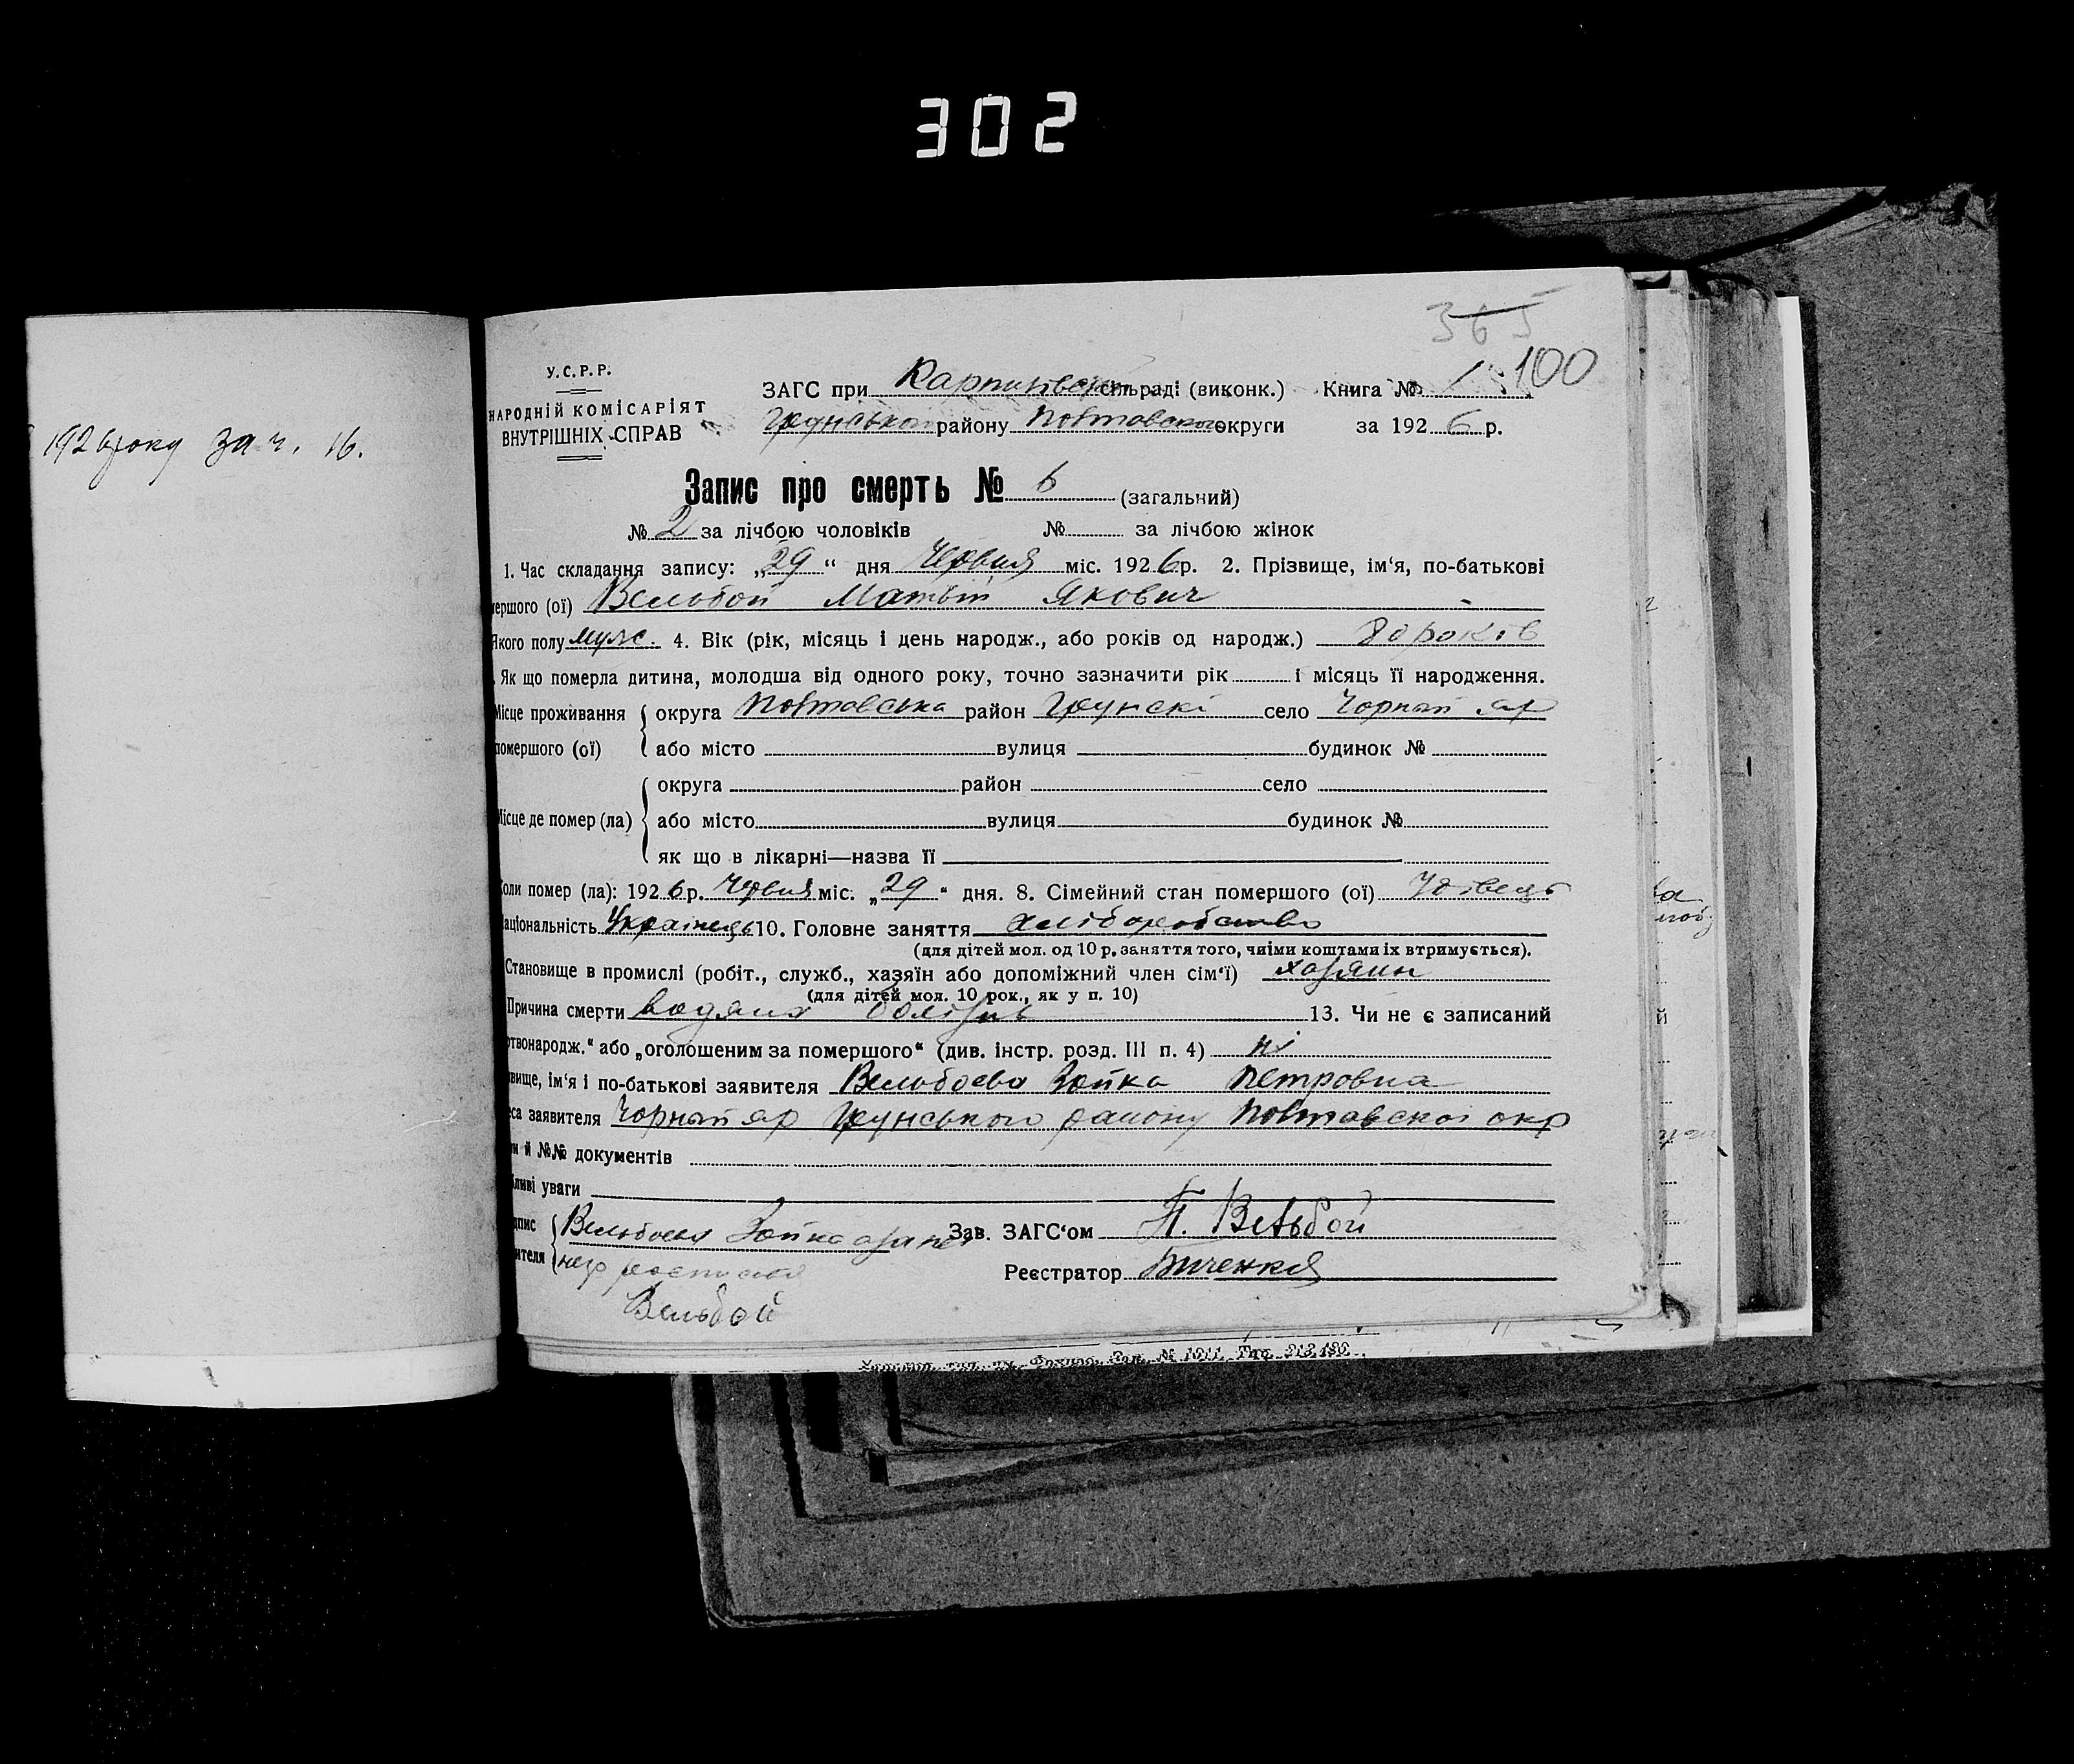 302
365
У.С.Р.Р.
НАРОДНІЙ КОМІСАРІЯТ
ВНУТРІШНІХ СПРАВ
ЗАГС при Карпилівській сільраді (виконк.) Книга № 1 100
Грунського району Полтавської округи за 1926 р.
1926 року за ч. 16.
Запис про смерть № 6 (загальний)
№ 2 за лічбою чоловіків № за лічбою жінок
1. Час складання запису: „29“ дня Червня міс. 1926 р. 2. Прізвище, ім‘я, по-батькові
мершого (ої) Вельбой Матвій Якович
Якого полу муж. 4. Вік (рік, місяць і день народж., або років од народж.) 80 років
Як що померла дитина, молодша від одного року, точно зазначити рік і місяць її народження.
Місце проживання округа Полтавська район Грунскі село Чорний яр
помершого (ої) або місто вулиця будинок №
округа район село
Місце де помер (ла) або місто вулиця будинок №
як що в лікарні—назва її
Коли помер (ла): 1926 р. Червня міс. „29“ дня. 8. Сімейний стан помершого (ої) Удівець
аціональність Українець 10. Головне заняття хліборобство
(для дітей мол. од 10 р. заняття того, чиїми коштами їх втримується).
Становище в промислі (робіт., служб., хазяїн або допоміжний член сім‘ї) хозяин
(для дітей мол. 10 рок., як у п. 10)
Причина смерти водяна болізнь 13. Чи не є записаний
ртвонародж.“ або „оголошеним за помершого“ (див. інстр. розд. III п. 4) ні
звище, ім‘я і по-батькові заявителя Вельбоева Зойка Петровна
еса заявителя Чорний яр Грунського району Полтавської окр
й №№ документів
бливі уваги
дпис Вельбоева Зойка а за неї Зав. ЗАГС‘ом П. Вельбой
вителя Реєстратор Биченко
Вельбой